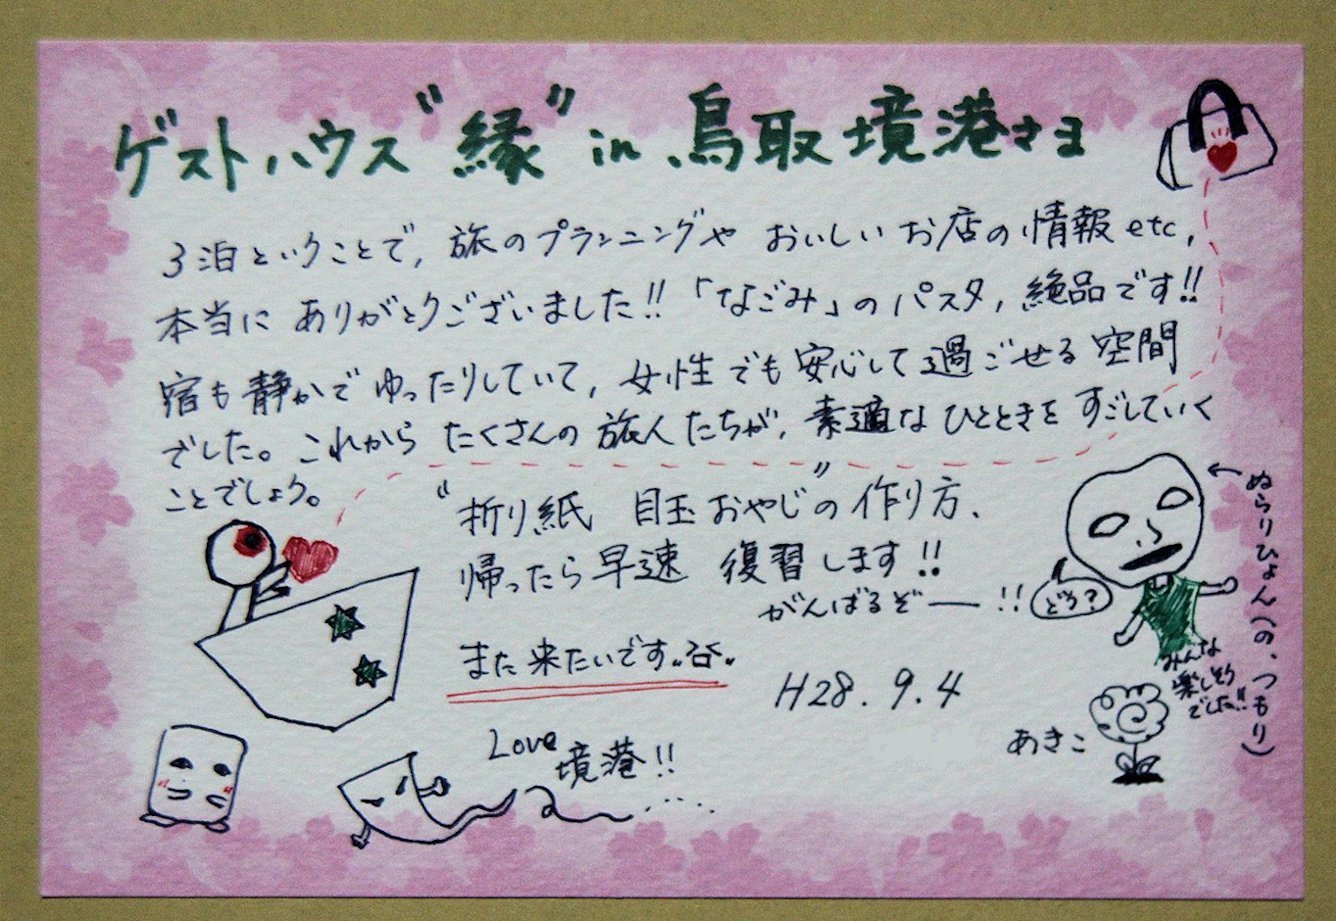 ゲストハウス“縁”in 鳥取境港さま
3泊ということで, 旅のプランニングや おいしいお店の情報etc,
本当に ありがとうございました!! 「なごみ」のパスタ, 絶品です!!
宿も静かでゆったりしていて, 女性でも安心して過ごせる空間
でした。これから たくさんの旅人たちが, 素適なひとときをすごしていく
ことでしょう。
“折り紙 目玉おやじ”の作り方、
帰ったら早速 復習します!!
がんばるぞー!!
また来たいです。
H28.9.4
あきこ
Love
境港!!
ぬらりひょん(の、つもり)
どう?
みんな
楽しそう
でした!!